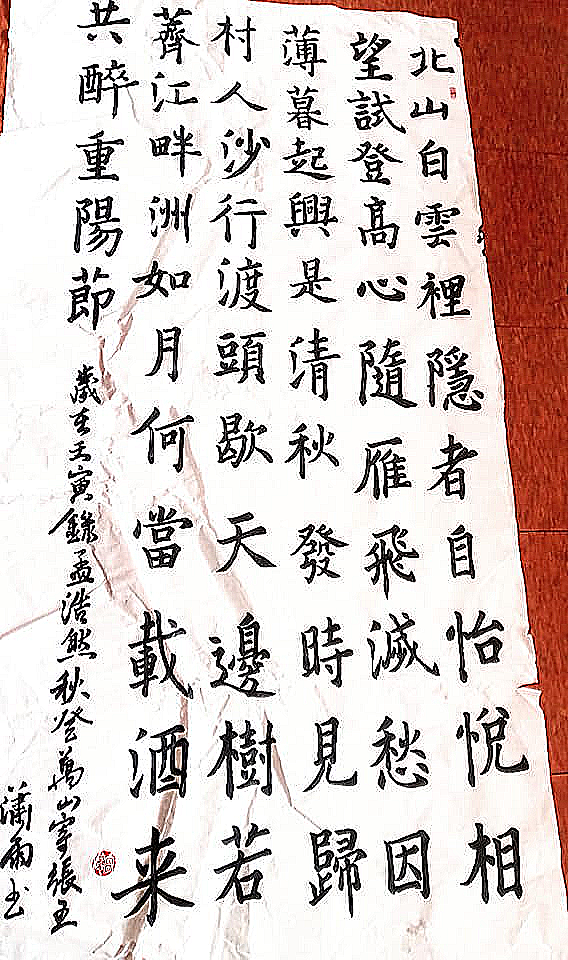 北山白雲裡隱者自怡悅相
望試登高心隨雁飛滅愁因
薄暮起興是清秋發時見歸
村人沙行渡頭歇天邊樹若
薺江畔洲如月何當載酒来
共醉重陽節
歲在壬寅錄孟浩然秋登萬山寄張五
瀟雨书